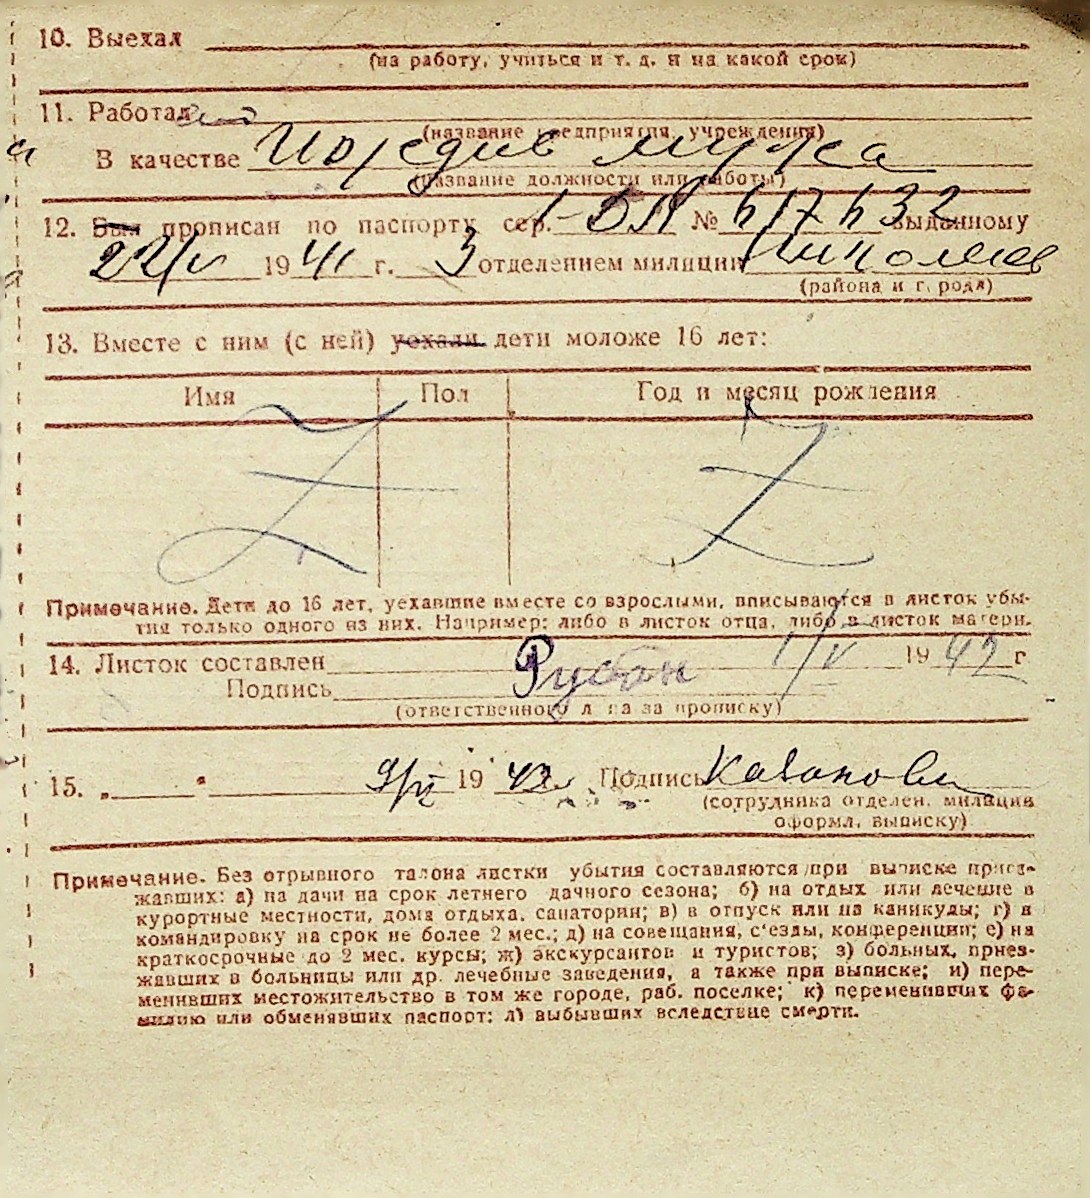 10. Выехал
(на работу, учиться и т. д. и на какой срок)
11. Работал
(название предприятия, учреждения)
В качестве Иждив мужа
(название должности или работы)
12. Был прописан по паспорту сер. № выданному
22/V 1941 г. 3 отделением милиции Николаев
(района и города)
13. Вместе с ним (с ней) уехали дети моложе 16 лет:
Имя Пол Год и месяц рождения
Z Z
Примечание. Дети до 16 лет, уехавшие вместе со взрослыми, вписываются в листок убы-
тия только одного из них. Например: либо в листок отца, либо в листок матери.
14. Листок составлен 1/V 1942 г
Подпись Рубан
(ответственного лица за прописку)
15. „ " 1942 Подпись
(сотрудника отделен. милиции
оформл. выписку)
Примечание. Без отрывного талона листки убытия составляются при выписке приез-
жавших: а) на дачи на срок летнего дачного сезона; б) на отдых или лечение в
курортные местности, дома отдыха, санатории; в) в отпуск или на каникулы; г) в
командировку на срок не более 2 мес.; д) на совещания, с'езды, конференции; е) на
краткосрочные до 2 мес. курсы; ж) экскурсантов и туристов; з) больных, приез-
жавших в больницы или др. лечебные заведения, а также при выписке; и) пере-
менивших местожительство в том же городе, раб. поселке; к) переменивших фа-
милию или обменявших паспорт; л) выбывших вследствие смерти.